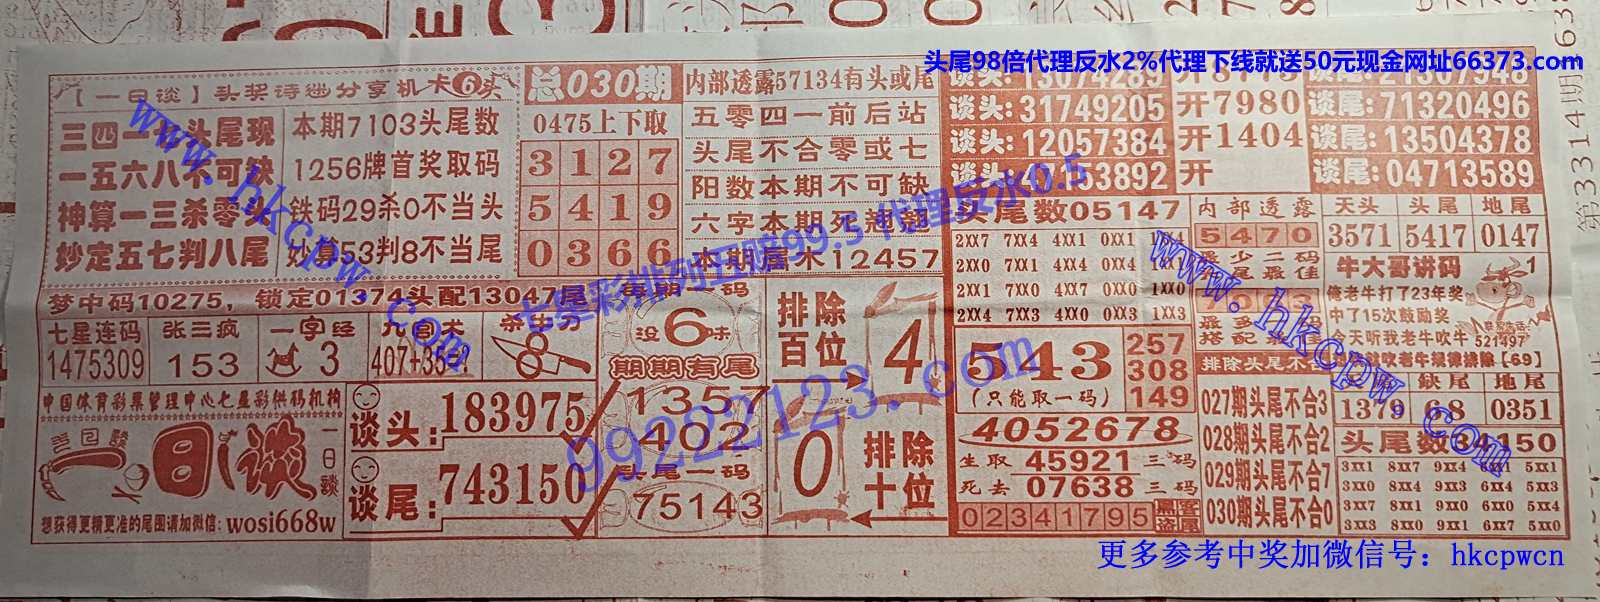 头尾98倍代理反水2%代理下线就送50元现金网址66373.com
【一日谈】头奖诗谜分享机卡6头
三四一 头尾现
一五六八不可缺
神算一三杀零头
妙定五七判八尾
本期7103头尾数
1256牌首奖取码
铁码29杀0不当头
妙算53判8不当尾
总030期
0475上下取
3 1 2 7
5 4 1 9
0 3 6 6
内部透露57134有头或尾
五零四一前后站
头尾不合零或七
阳数本期不可缺
六字本期死翘翘
本期属木12457
梦中码10275，锁定01374头配13047尾
七星连码
1475309
张三疯
153
一字经
3
九宫术
407+35
杀牛刀
中国体育彩票管理中心七星彩供码机构
一日谈
一日谈
想获得更精更准的尾图请加微信: wosi668w
谈头: 183975
谈尾: 743150
每期一码
没6味
期期有尾
1357
402
头尾一码
75143
排除百位
4
0
排除十位
谈头: 13074289
谈头: 31749205
谈头: 12057384
谈头: 47153892
开8473
开7980
开1404
开
谈尾: 21507948
谈尾: 71320496
谈尾: 13504378
谈尾: 04713589
头尾数05147
2XX7 7XX4 4XX1 0XX1
2XX0 7XX6 4XX4 0XX
2XX1 7XX0 4XX7 0XX0 1XX0
2XX4 7XX3 4XX0 0XX3 1XX3
543
(只能取一码)
257
308
149
4052678
生取 45921 三码
死去 07638 三码
02341795
黑客盗图
内部透露
5470
最少二码
头尾最佳
最多
搭配
排除头尾不合
027期头尾不合3
028期头尾不合2
029期头尾不合7
030期头尾不合0
天头 头尾 地尾
3571 5417 0147
牛大哥讲码
俺老牛打了23年奖
中了15次鼓励奖
今天听我老牛吹牛
就吹老牛规律排除【69】
1
联系电话
521497
缺尾 地尾
1379 68 0351
头尾数34150
3XX1 8XX7 9XX4 6XX1 5XX1
3XX0 8XX4 9XX3 6XX4 5XX3
3XX7 8XX1 9XX0 6XX0 5XX4
3XX3 8XX0 9XX1 6XX7 5XX0
第33314期
www.hkcpw.com
七星彩排列五赔99.5 代理反水0.5
99222123.com
www.hkcpw.com
更多参考中奖加微信号：hkcpwcn